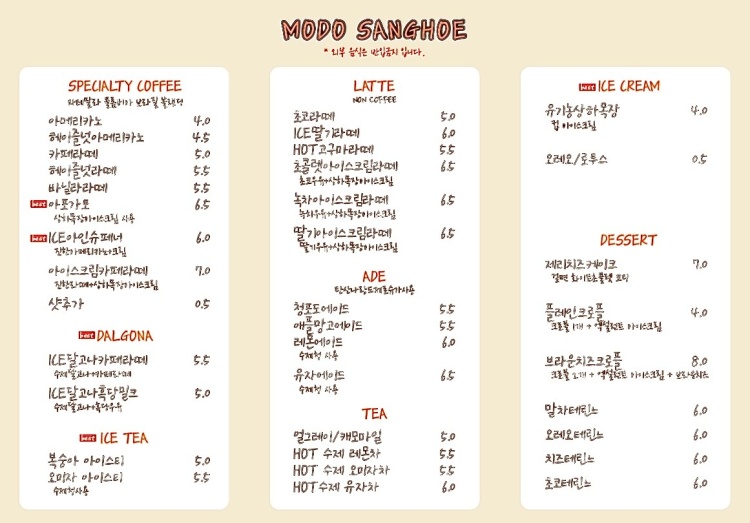 MODO SANGHOE
* 외부 음식은 반입금지 입니다.
SPECIALTY COFFEE
과테말라 콜롬비아 브라질 블랜딩
아메리카노 4.0
헤이즐넛아메리카노 4.5
카페라떼 5.0
헤이즐넛라떼 5.5
바닐라라떼 5.5
best 아포가토 6.5
상하목장아이스크림 사용
best ICE아인슈페너 6.0
진한아메리카노+크림
아이스크림카페라떼 7.0
진한라떼+상하목장아이스크림
샷추가 0.5
best DALGONA
ICE달고나카페라떼 5.5
수제달고나+카페라떼
ICE달고나흑당밀크 5.0
수제달고나+흑당우유
best ICE TEA
복숭아 아이스티 5.0
오미자 아이스티 5.5
수제청사용
LATTE
NON COFFEE
초코라떼 5.0
ICE딸기라떼 6.0
HOT고구마라떼 5.5
초콜렛아이스크림라떼 6.5
초코우유+상하목장아이스크림
녹차아이스크림라떼 6.5
녹차우유+상하목장아이스크림
딸기아이스크림라떼 6.5
딸기우유+상하목장아이스크림
ADE
탄산나랑드제로슈가사용
청포도에이드 5.5
애플망고에이드 5.5
레몬에이드 6.0
수제청 사용
유자에이드 6.5
수제청 사용
TEA
얼그레이/캐모마일 5.0
HOT 수제 레몬차 5.5
HOT 수제 오미자차 5.5
HOT 수제 유자차 6.0
best ICE CREAM
유기농상하목장 4.0
컵 아이스크림
오레오/로투스 0.5
DESSERT
제리치즈케이크 7.0
겉면 화이트초콜렛 코팅
플레인크로플 4.0
크로플 1개 + 엑설런트 아이스크림
브라운치즈크로플 8.0
크로플 2개 + 엑설런트 아이스크림 + 브라운치즈
말차테린느 6.0
오레오테린느 6.0
치즈테린느 6.0
초코테린느 6.0